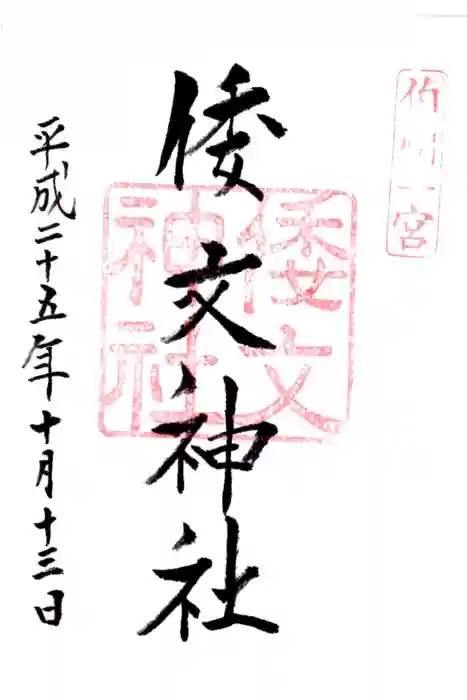 伯州一宮
倭文神社
倭文
神社
平成二十五年十月十三日